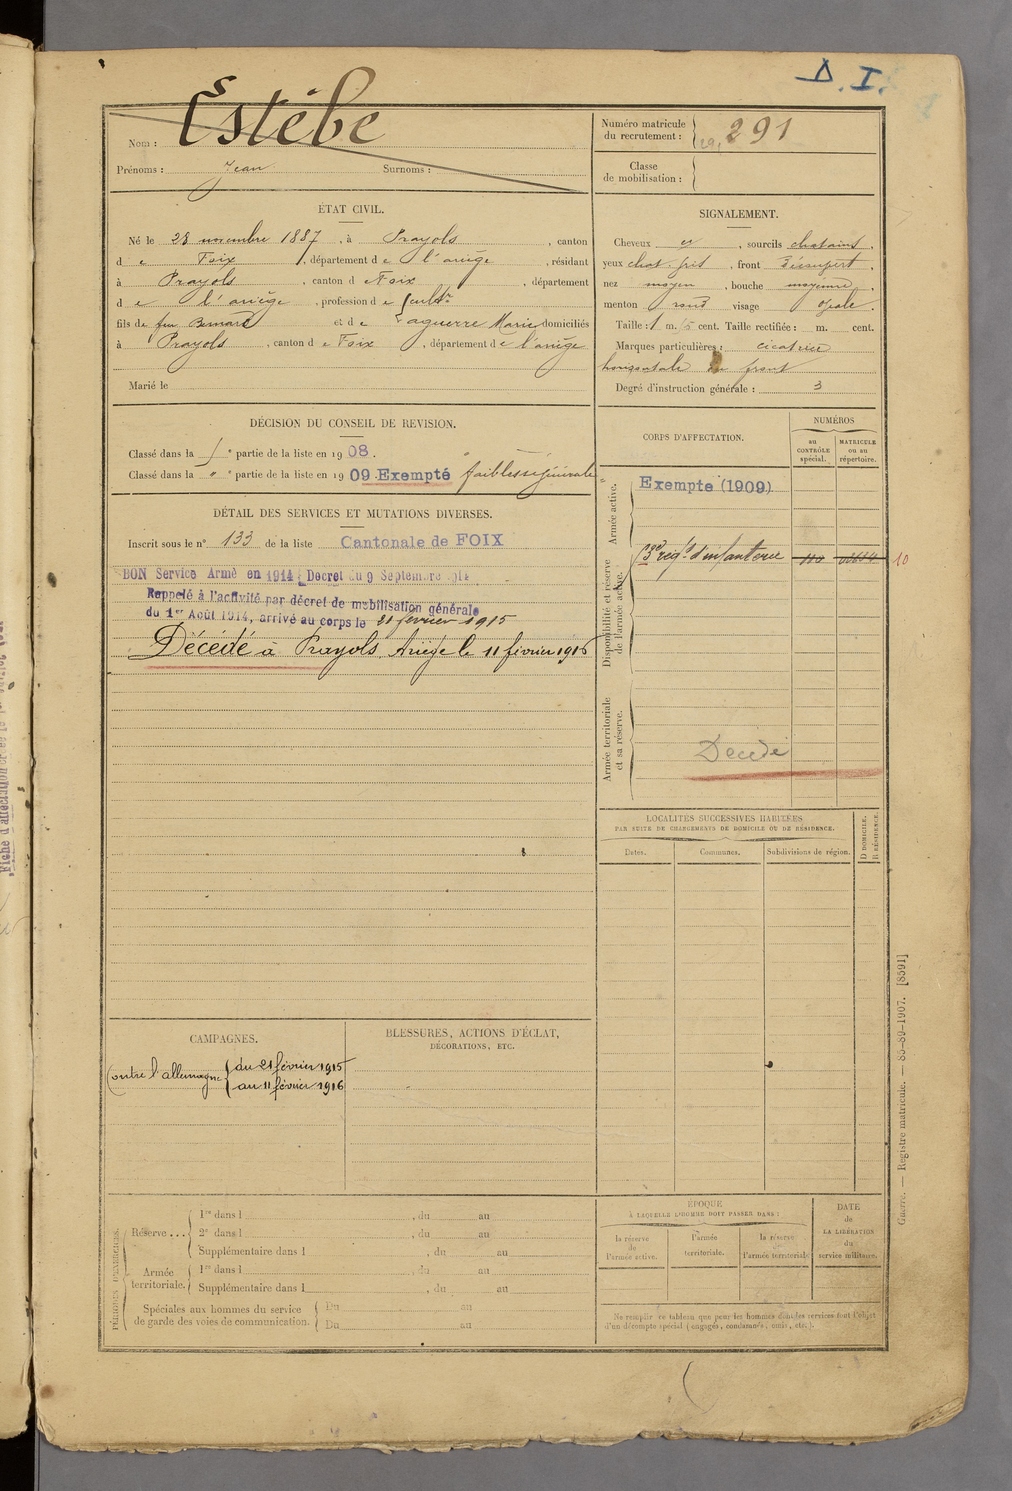 D. I.
Estèbe
Nom :
Prénoms : Jean Surnoms :
Numéro matricule
du recrutement : 291
Classe
de mobilisation :
ÉTAT CIVIL.
Né le 28 novembre 1887, à Prayols, canton
de Foix, département de l'ariège, résidant
à Prayols, canton de Foix, département
de l'ariège, profession de cultr
fils de feu Bernard et de Laguerre Marie domiciliés
à Prayols, canton de Foix, département de l'ariège
Marié le
SIGNALEMENT.
Cheveux et, sourcils chatains,
yeux chat. gris, front découvert,
nez moyen, bouche moyenne,
menton rond visage ovale.
Taille : 1 m. cent. Taille rectifiée : m. cent.
Marques particulières : cicatrice
horizontale au front
Degré d'instruction générale : 3
DÉCISION DU CONSEIL DE REVISION.
Classé dans la e partie de la liste en 1908.
Classé dans la " e partie de la liste en 1909 Exempté faiblesse générale
DÉTAIL DES SERVICES ET MUTATIONS DIVERSES.
Inscrit sous le n° 133 de la liste Cantonale de FOIX
BON Service Armé en 1914 Décret du 9 Septembre 1914
Rappelé à l'activité par décret de mobilisation générale
du 1er Août 1914, arrivé au corps le 21 février 1915
Décédé à Prayols Ariège le 11 février 1916
CORPS D'AFFECTATION.
NUMÉROS
au
CONTRÔLE
spécial.
MATRICULE
ou au
répertoire.
Armée active.
Exempté (1909)
Disponibilité et réserve
de l'armée active.
régt d'infanterie
10
Armée territoriale
et sa réserve.
Décédé
LOCALITÉS SUCCESSIVES HABITÉES
PAR SUITE DE CHANGEMENTS DE DOMICILE OU DE RÉSIDENCE.
Dates.
Communes.
Subdivisions de région.
D DOMICILE.
R RÉSIDENCE.
CAMPAGNES.
Contre l'allemagne du 21 février 1915
au 11 février 1916
BLESSURES, ACTIONS D'ÉCLAT,
DÉCORATIONS, ETC.
PÉRIODES D'EXERCICES.
Réserve...
1re dans l , du au
2e dans l , du au
Supplémentaire dans l , du au
Armée
territoriale.
1re dans l , du au
Supplémentaire dans l , du au
Spéciales aux hommes du service
de garde des voies de communication.
Du au
Du au
ÉPOQUE
À LAQUELLE L'HOMME DOIT PASSER DANS :
la réserve
de
l'armée active.
l'armée
territoriale.
la réserve
de
l'armée territoriale
DATE
de
LA LIBÉRATION
du
service militaire.
Ne remplir ce tableau que pour les hommes dont les services font l'objet
d'un décompte spécial (engagés, condamnés, omis, etc.).
Guerre. — Registre matricule. — 85-89-1907. [8591]